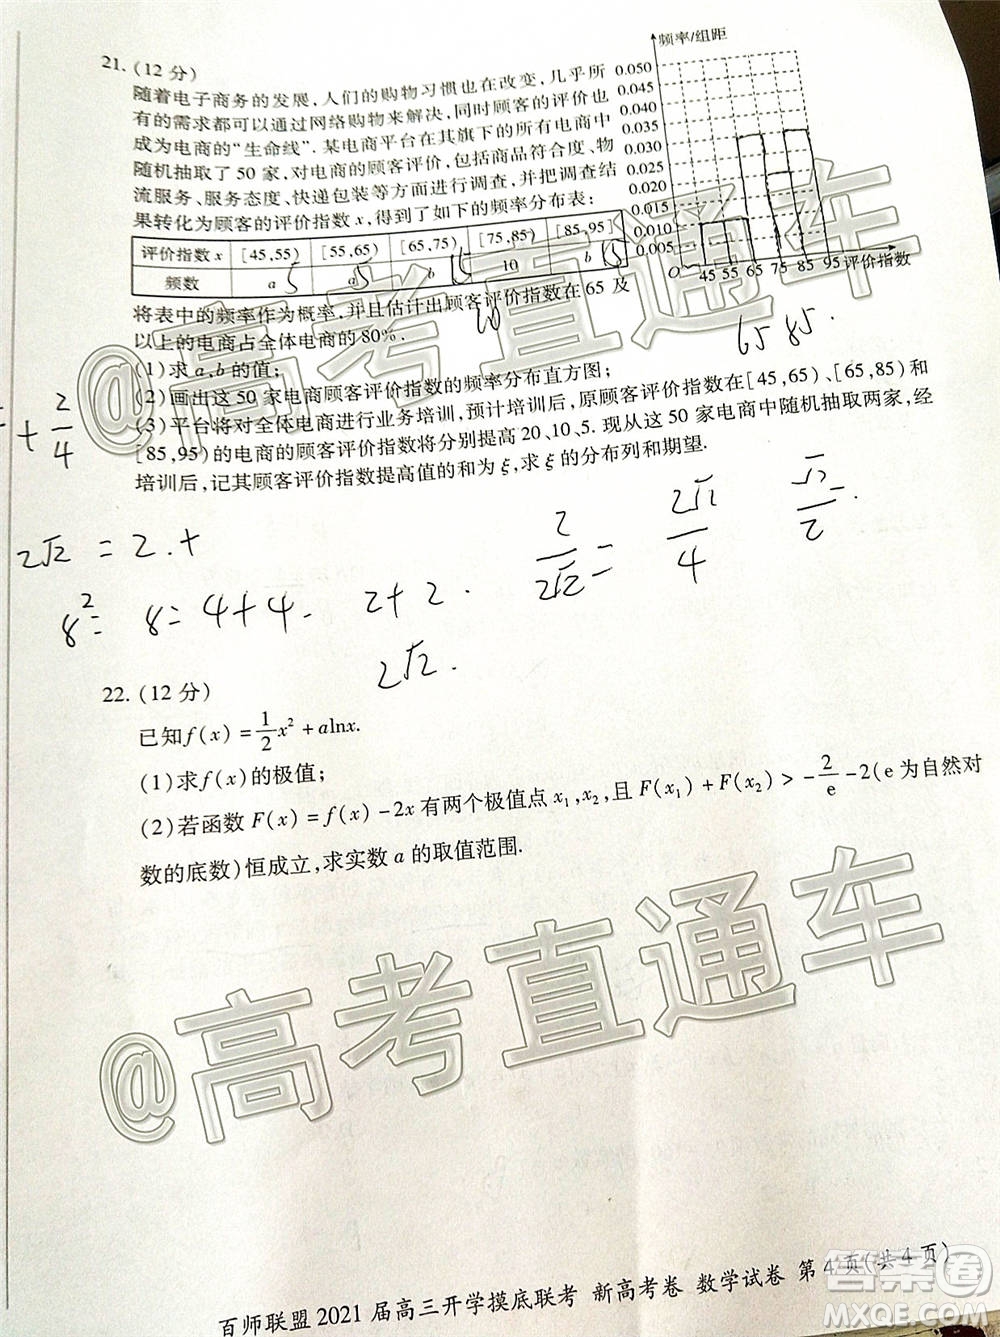 21. (12 分)
随着电子商务的发展,人们的购物习惯也在改变,几乎所
有的需求都可以通过网络购物来解决,同时顾客的评价也
成为电商的“生命线”. 某电商平台在其旗下的所有电商中
随机抽取了 50 家,对电商的顾客评价,包括商品符合度、物
流服务、服务态度、快递包装等方面进行调查,并把调查结
果转化为顾客的评价指数 x,得到了如下的频率分布表:
评价指数 x [45,55) [55,65) [65,75) [75,85) [85,95]
频数 a a b 10 b
5 5 15 15
频率/组距
0.050
0.045
0.040
0.035
0.030
0.025
0.020
0.015
0.010
0.005
O 45 55 65 75 85 95 评价指数
将表中的频率作为概率,并且估计出顾客评价指数在 65 及
以上的电商占全体电商的 80%.
20
65 85.
(1)求 a,b 的值;
(2)画出这 50 家电商顾客评价指数的频率分布直方图;
(3)平台将对全体电商进行业务培训,预计培训后,原顾客评价指数在[45,65)、[65,85)和
[85,95)的电商的顾客评价指数将分别提高 20、10、5. 现从这 50 家电商中随机抽取两家,经
培训后,记其顾客评价指数提高值的和为 ξ,求 ξ 的分布列和期望.
+ 2/4
2√2 = 2.+
2/2√2 = 2√2/4 √2/2.
8²= 8=4+4. 2+2.
2√2.
22. (12 分)
已知f(x)=1/2x²+alnx.
(1)求f(x)的极值;
(2)若函数 F(x)=f(x)-2x 有两个极值点 x₁,x₂,且 F(x₁)+F(x₂)>-2/e-2(e 为自然对
数的底数)恒成立,求实数 a 的取值范围.
@高考直通车
@高考直通车
百师联盟 2021 届高三开学摸底联考 新高考卷 数学试卷 第 4 页(共 4 页)
答案圈
MXQE.COM